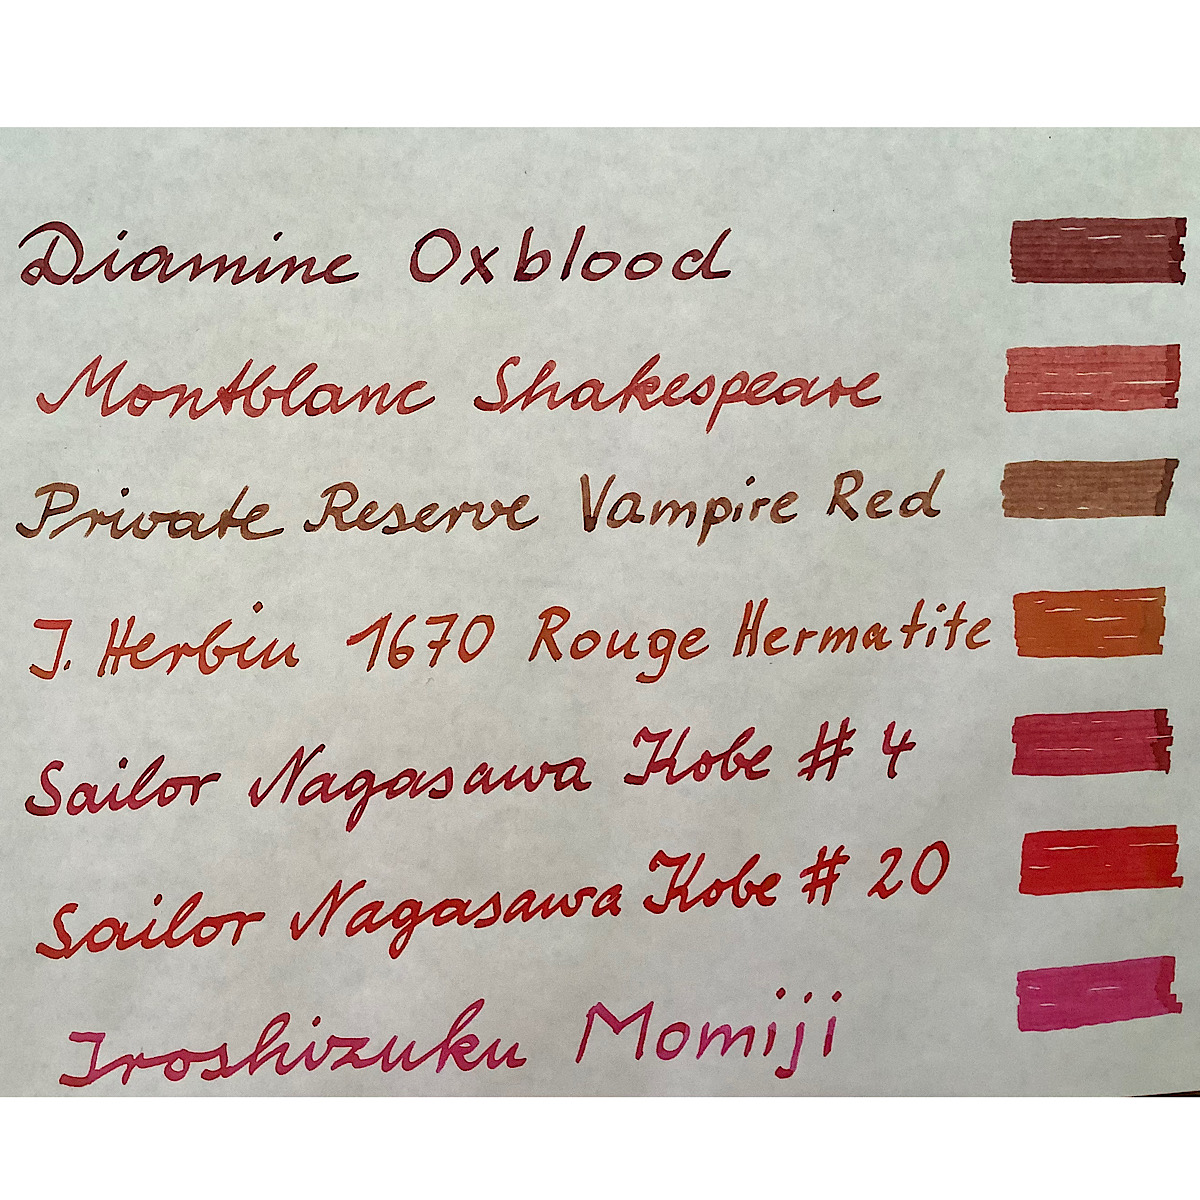 Diamine Oxblood
Montblanc Shakespeare
Private Reserve Vampire Red
J. Herbin 1670 Rouge Hermatite
Sailor Nagasawa Kobe # 4
Sailor Nagasawa Kobe # 20
Iroshizuku Momiji